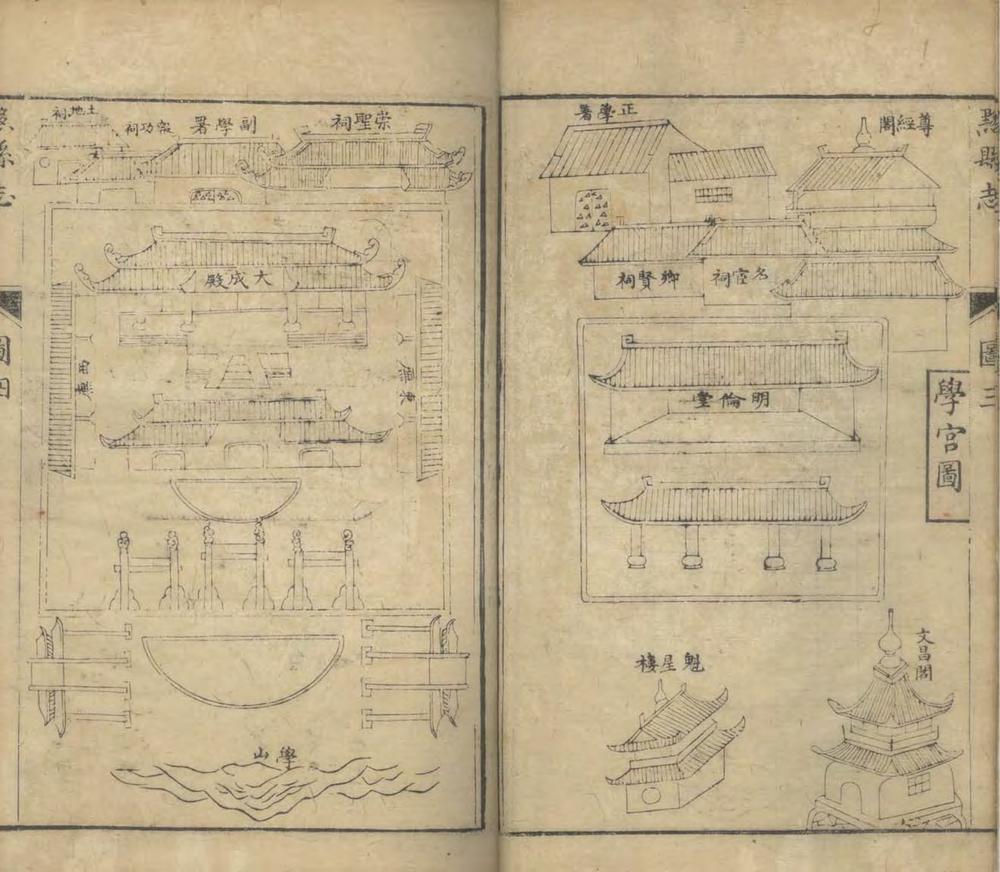 黟縣志
圖三
學宮圖
尊經閣
正學署
名宦祠
鄉賢祠
明倫堂
文昌閣
魁星樓
崇聖祠
副學署
報功祠
土地祠
大成殿
東廡
西廡
學山
縣志
圖四